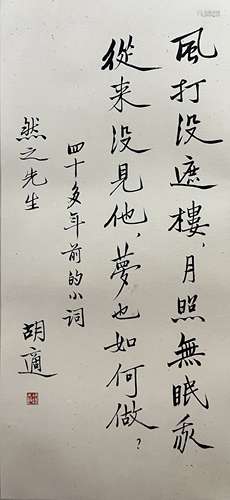 風打没遮樓，月照無眠我
從来没見他，夢也如何做？
四十多年前的小词
然之先生
胡適